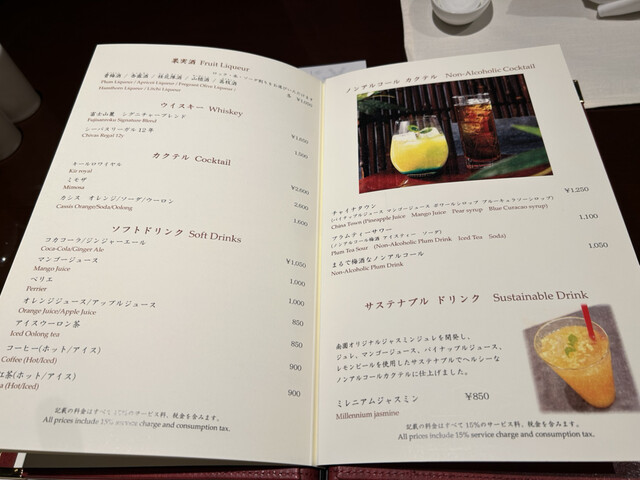 果実酒 Fruit Liqueur
Plum Liqueur / Apricot Liqueur / Fragrant Olive Liqueur /
Hawthorn Liqueur / Litchi Liqueur
ウイスキー Whiskey
富士山麓 シグニチャーブレンド
Fujisanroku Signature Blend
¥1,650
シーバスリーガル 12 年
Chivas Regal 12y
1,500
カクテル Cocktail
キールロワイヤル
Kir royal
¥2,600
ミモザ
Mimosa
2,600
カシス オレンジ/ソーダ/ウーロン
Cassis Orange/Soda/Oolong
1,600
ソフトドリンク Soft Drinks
コカコーラ/ジンジャーエール
Coca-Cola/Ginger Ale
¥1,050
マンゴージュース
Mango Juice
1,000
ペリエ
Perrier
1,000
オレンジジュース/アップルジュース
Orange Juice/Apple Juice
850
アイスウーロン茶
Iced Oolong tea
850
コーヒー(ホット/アイス)
Coffee (Hot/Iced)
900
紅茶(ホット/アイス)
(Hot/Iced)
900
記載の料金はすべて 15%のサービス料、税金を含みます。
All prices include 15% service charge and consumption tax.
ノンアルコール カクテル Non-Alcoholic Cocktail
チャイナタウン
(パイナップルジュース マンゴージュース ポワールシロップ ブルーキュラソーシロップ)
China Town (Pineapple Juice Mango Juice Pear syrup Blue Curacao syrup)
¥1,250
プラムティーサワー
(ノンアルコール梅酒 アイスティー ソーダ)
Plum Tea Sour (Non-Alcoholic Plum Drink Iced Tea Soda)
1,100
まるで梅酒なノンアルコール
Non-Alcoholic Plum Drink
1,050
サステナブル ドリンク Sustainable Drink
南園オリジナルジャスミンジュレを開発し、
ジュレ、マンゴージュース、パイナップルジュース、
レモンピールを使用したサステナブルでヘルシーな
ノンアルコールカクテルに仕上げました。
ミレニアムジャスミン ¥850
Millennium jasmine
記載の料金はすべて 15%のサービス料、税金を含みます。
All prices include 15% service charge and consumption tax.